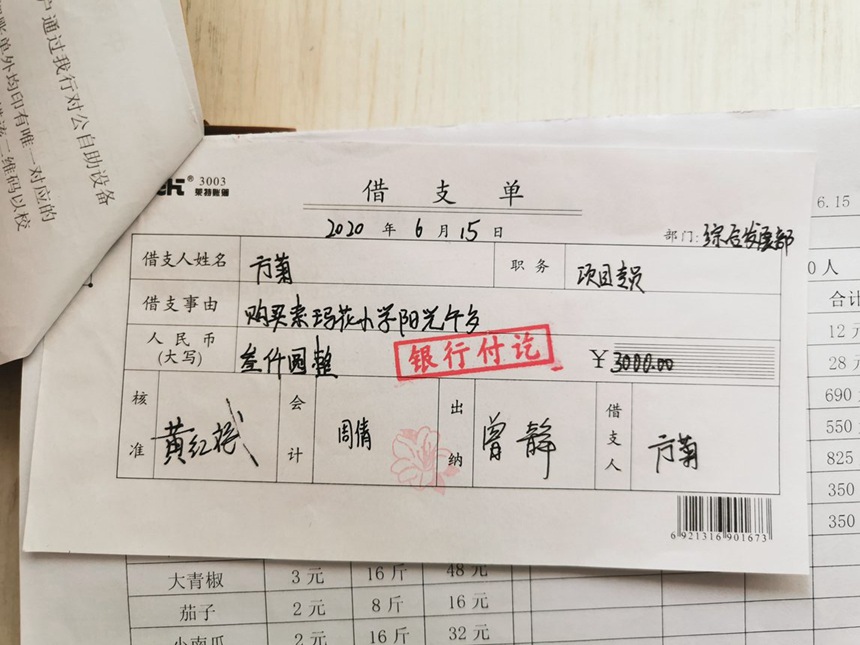 户通过我行对公自助设备
账单外均印有唯一对应的
二维码以校
® 3003
莱特账簿
借支单
2020 年 6 月 15 日
部门:综合发展部
借支人姓名 方菊 职务 项目专员
借支事由 购买索玛花小学阳光午乡
人民币(大写) 叁仟圆整 银行付讫 ¥3000.00
核准 黄红斌 会计 周倩 出纳 曾静 借支人 方菊
6 921316 901673
6.15
0人
合计
12元
28元
690
550
825
350
350
大青椒 3元 16斤 48元
茄子 2元 8斤 16元
小南瓜 2元 16斤 32元